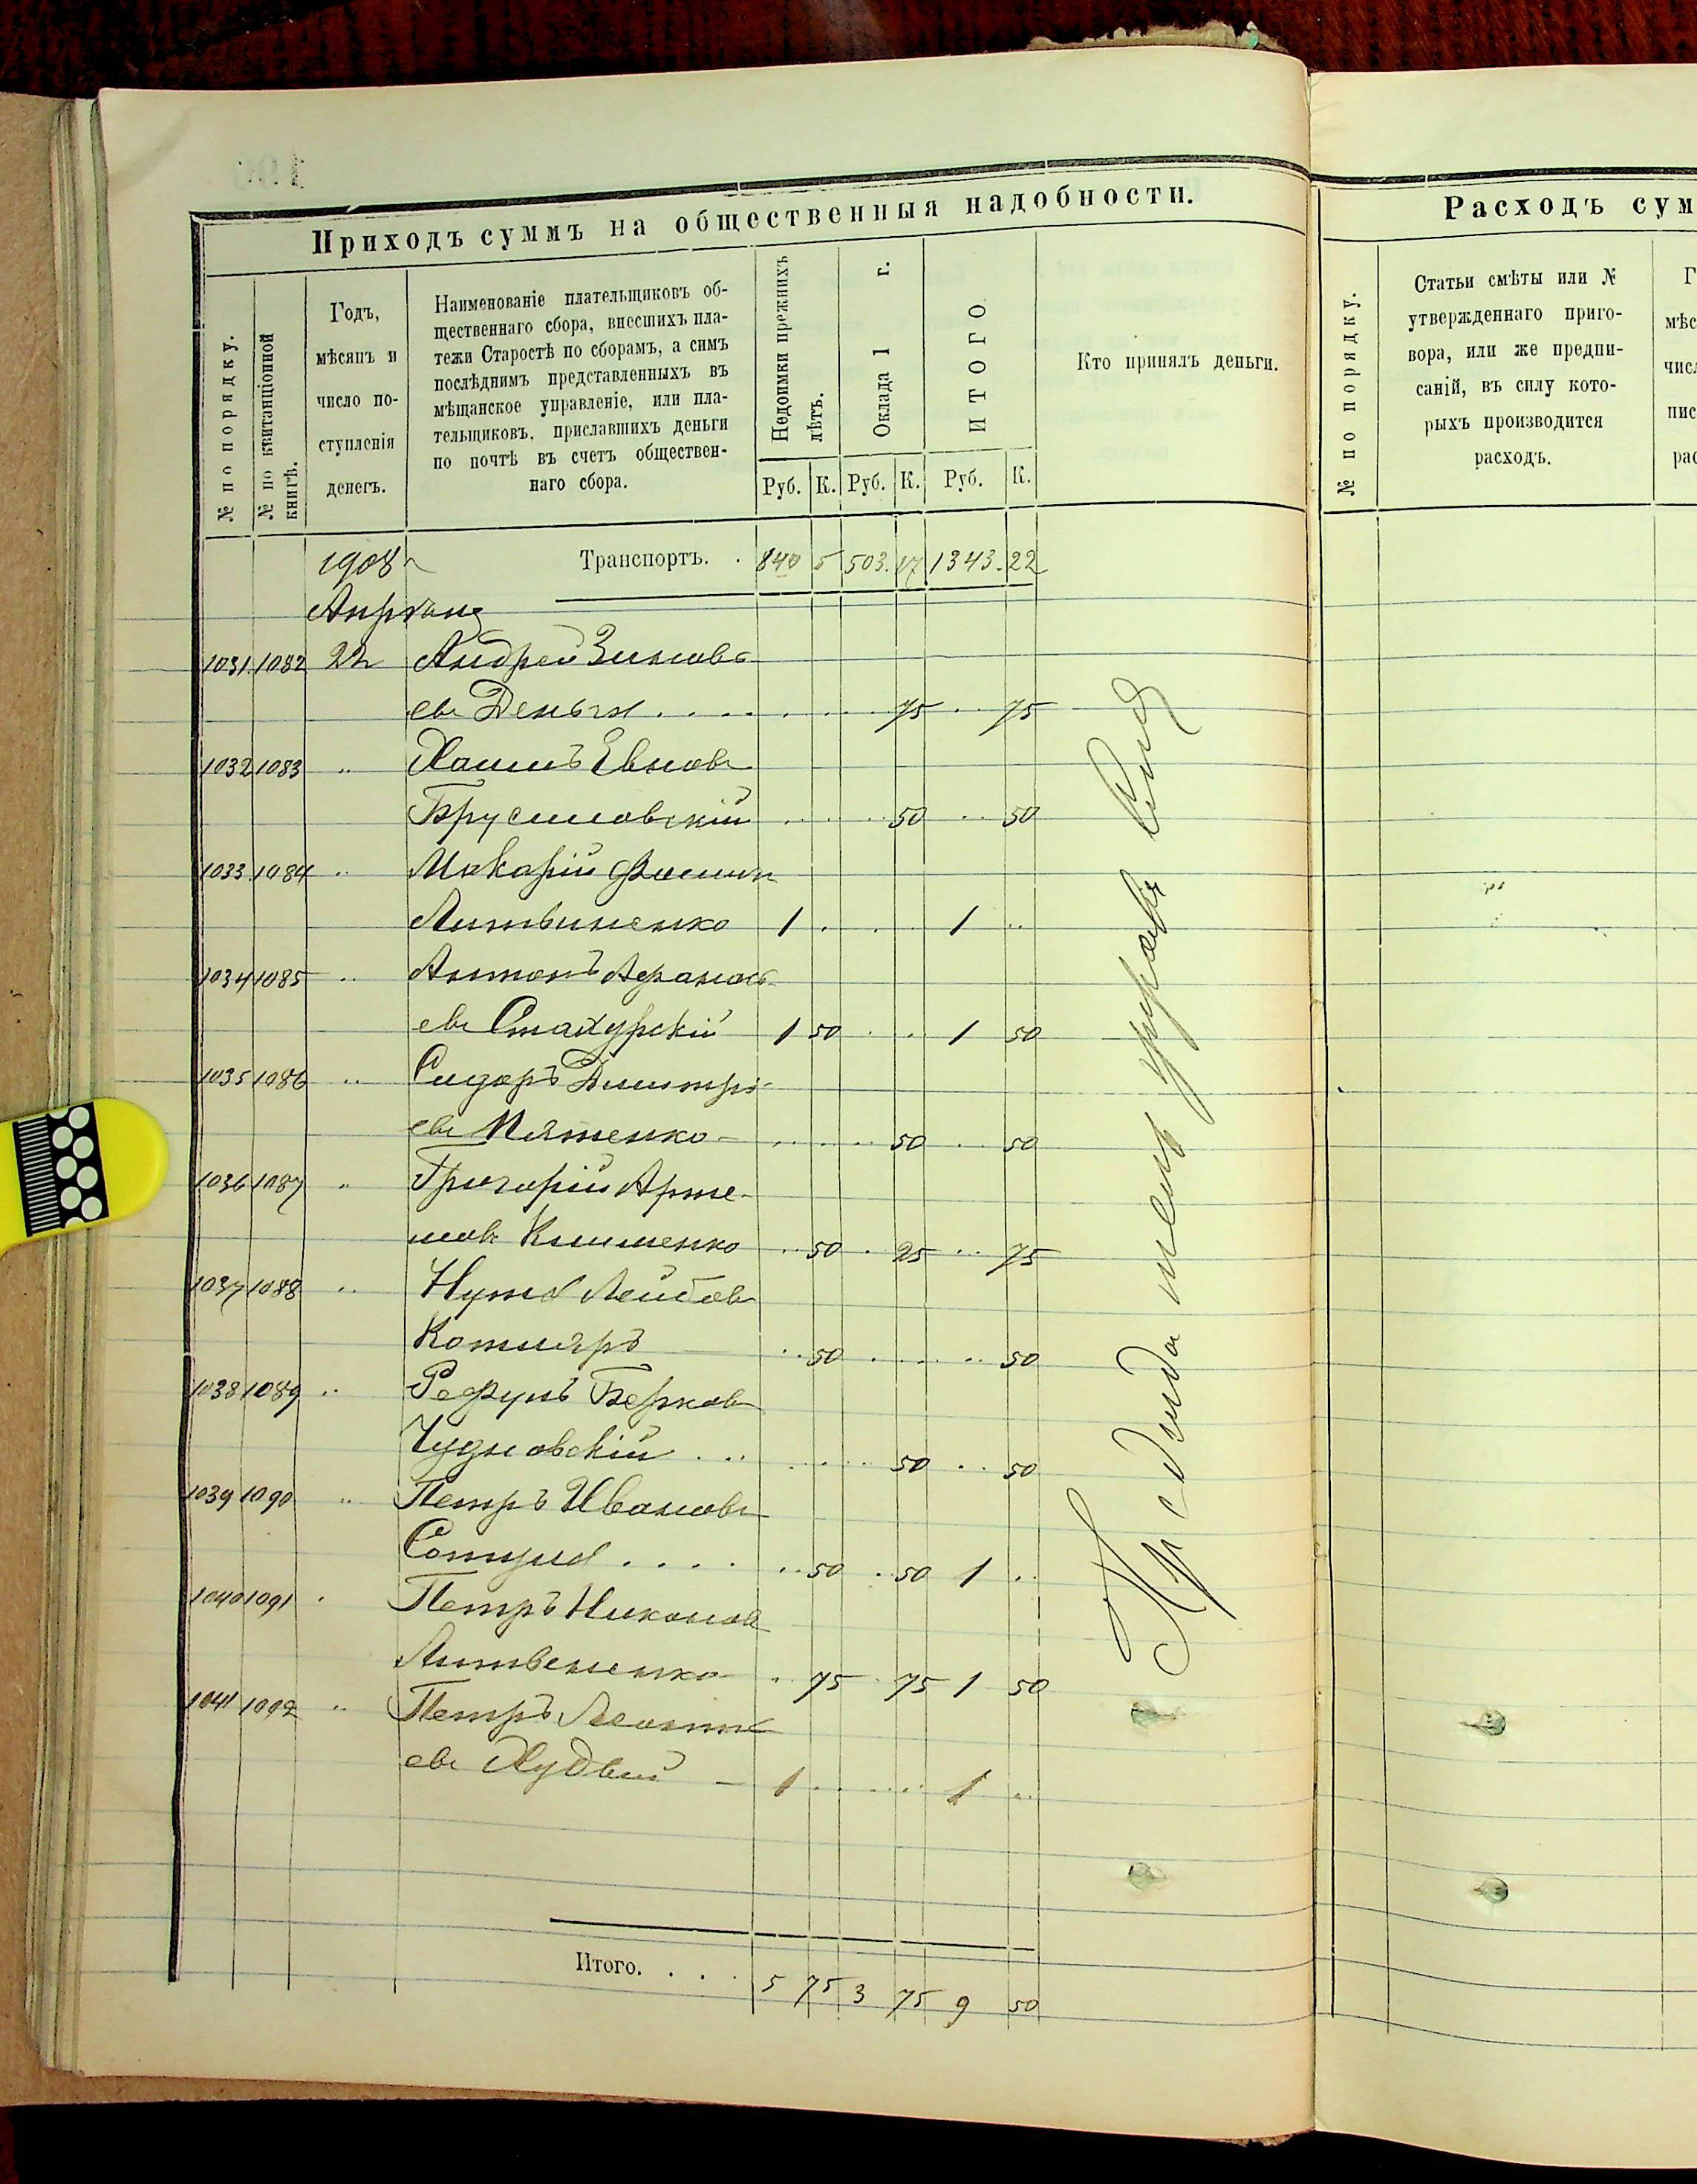 Приходъ суммъ на общественныя надобности.
№ по порядку.
№ по квитанціонной книгѣ.
Годъ,
мѣсяцъ и
число по-
ступленія
денегъ.
Наименованіе плательщиковъ об-
щественнаго сбора, внесшихъ пла-
тежи Старостѣ по сборамъ, а симъ
послѣднимъ представленныхъ въ
мѣщанское управленіе, или пла-
тельщиковъ, приславшихъ деньги
по почтѣ въ счетъ обществен-
наго сбора.
Недоимки прежнихъ лѣтъ.
Оклада 1 г.
ИТОГО.
Кто принялъ деньги.
Руб. К. Руб. К. Руб. К.
1908 Транспортъ. . 840 5 503. 17 1343. 22
Апрѣля
1031. 1082 22 Андрей Зиновь
евъ Деньга .... 75 .. 75
1032 1083 " Хаимъ Евновъ
Брусиловскій 50 .. 50
1033. 1084 " Макарій Фомин
Литвиненко 1 .. 1 ..
1034 1085 " Антонъ Афанась
евъ Стахурскій 1 50 .. 1 50
1035 1086 " Сидоръ Дмитрі-
евъ 50 . 50
1036 1087 " Григорій Арте-
мовъ Клименко .. 50 . 25 .. 75
1037 1088 " Нута Лейбовъ
Котляръ .. 50 .... 50
1038 1089 " Берковъ
Чудновскій ... 50 .. 50
1039 1090 " Петръ Ивановъ
.... .. 50 . 50 1 ..
1040 1091 " Петръ Никоновъ
Литвененко . 75 . 75 1 50
1041 1092 " Петръ Леонтъ
евъ — 1 .... 1 ..
Итого. . . . 5 75 3 75 9 50
Расходъ сум
№ по порядку.
Статьи смѣты или №
утвержденнаго приго-
вора, или же предпи-
саній, въ силу кото-
рыхъ производится
расходъ.
Г
мѣс
числ
пис
рас